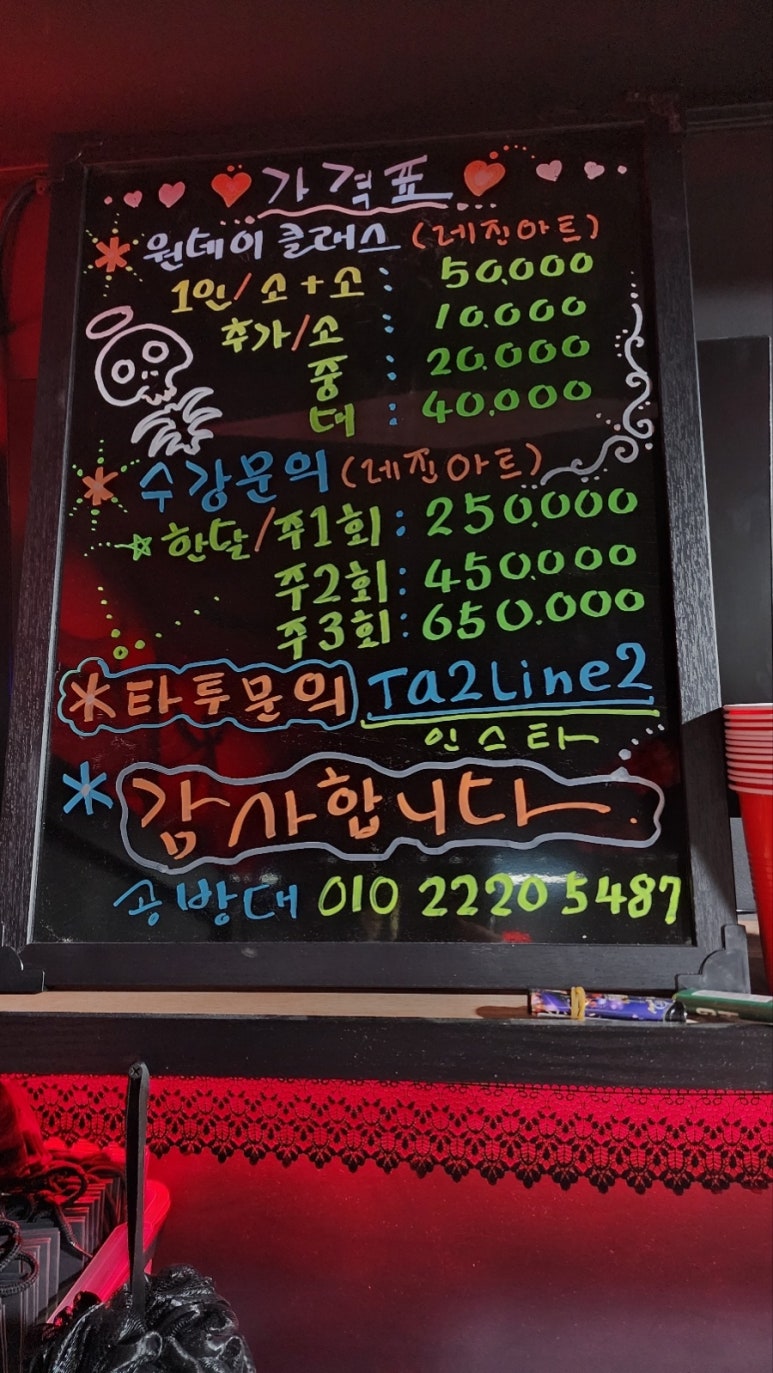 가격표
* 원데이 클래스 (레진아트)
1인/소+소 : 50.000
추가/소 : 10.000
중 : 20.000
대 : 40.000
* 수강문의 (레진아트)
☆한달/주1회: 250.000
주2회: 450.000
주3회: 650.000
*타투문의 Ta2Line2
인스타
* 감사합니다.
공방대 010 2220 5487